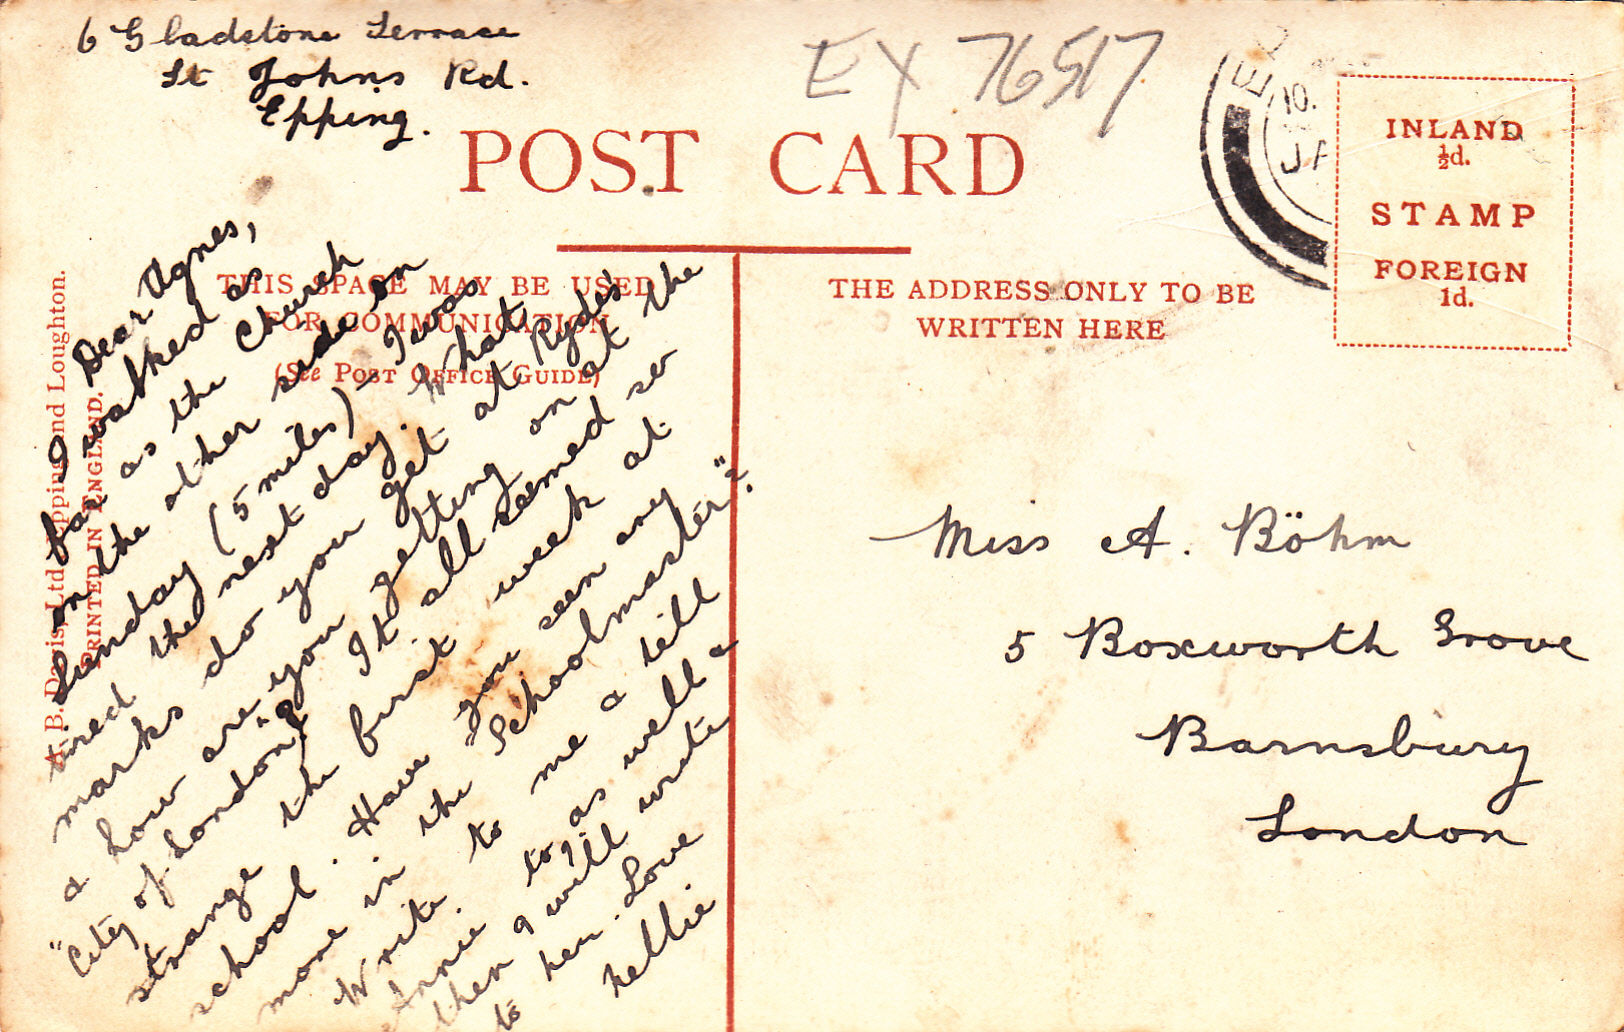 6 Gladstone Terrace
St Johns Rd.
Epping.
EX 76517
POST CARD
10.
JA
INLAND
½d.
STAMP
FOREIGN
1d.
THIS SPACE MAY BE USED
FOR COMMUNICATION
(See POST OFFICE GUIDE)
THE ADDRESS ONLY TO BE
WRITTEN HERE
A. B. Davis, Ltd Epping and Loughton.
PRINTED IN ENGLAND.
Dear Agnes,
I walked as
far as the Church
on the other side on
Sunday (5 miles) – I was
tired the next day. What
marks do you get at Ryde's
& how are you getting on at the
"City of London"? It all seemed so
strange the first week at
school. Have you seen any
more in the "Schoolmaster"?
Write to me & tell
Annie to, as well &
then I will write
to her. Love
Nellie
Miss A. Böhm
5 Boxworth Grove
Barnsbury
London